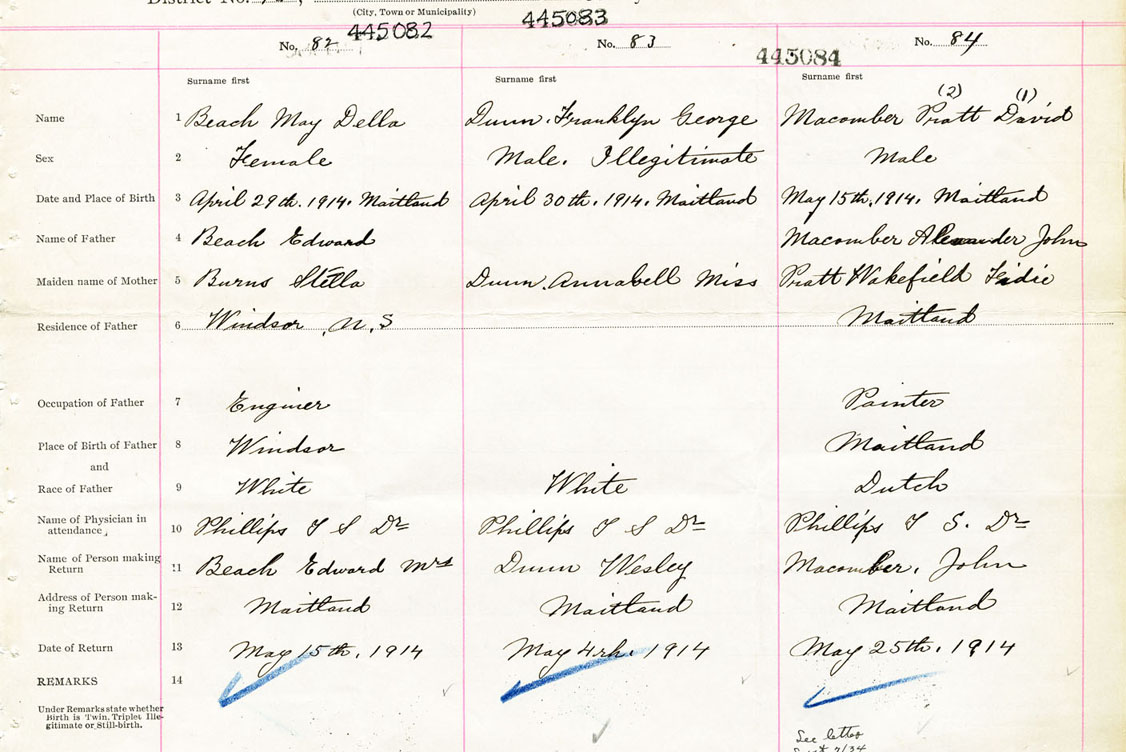 District No.
(City, Town or Municipality)
445082
445083
445084
No. 82
No. 83
No. 84
Surname first
Surname first
Surname first
(2) (1)
Name 1 Beach May Della Dunn. Franklyn George Macomber Pratt David
Sex 2 Female Male. Illegitimate Male
Date and Place of Birth 3 April 29th. 1914. Maitland April 30th. 1914. Maitland May 15th. 1914. Maitland
Name of Father 4 Beach Edward Macomber Alexander John
Maiden name of Mother 5 Burns Stella Dunn. Annabell Miss Pratt Wakefield
Residence of Father 6 Windsor, N,S Maitland
Occupation of Father 7 Enginer Painter
Place of Birth of Father 8 Windsor Maitland
and
Race of Father 9 White White Dutch
Name of Physician in
attendance, 10 Phillips T S Dr Phillips T S Dr Phillips T S. Dr
Name of Person making
Return 11 Beach Edward Mrs Dunn Wesley Macomber, John
Address of Person mak-
ing Return 12 Maitland Maitland Maitland
Date of Return 13 May 15th, 1914 May 4rh. 1914 May 25th. 1914
REMARKS 14
Under Remarks state whether
Birth is Twin, Triplet Ille-
gitimate or Still-birth.
See letter